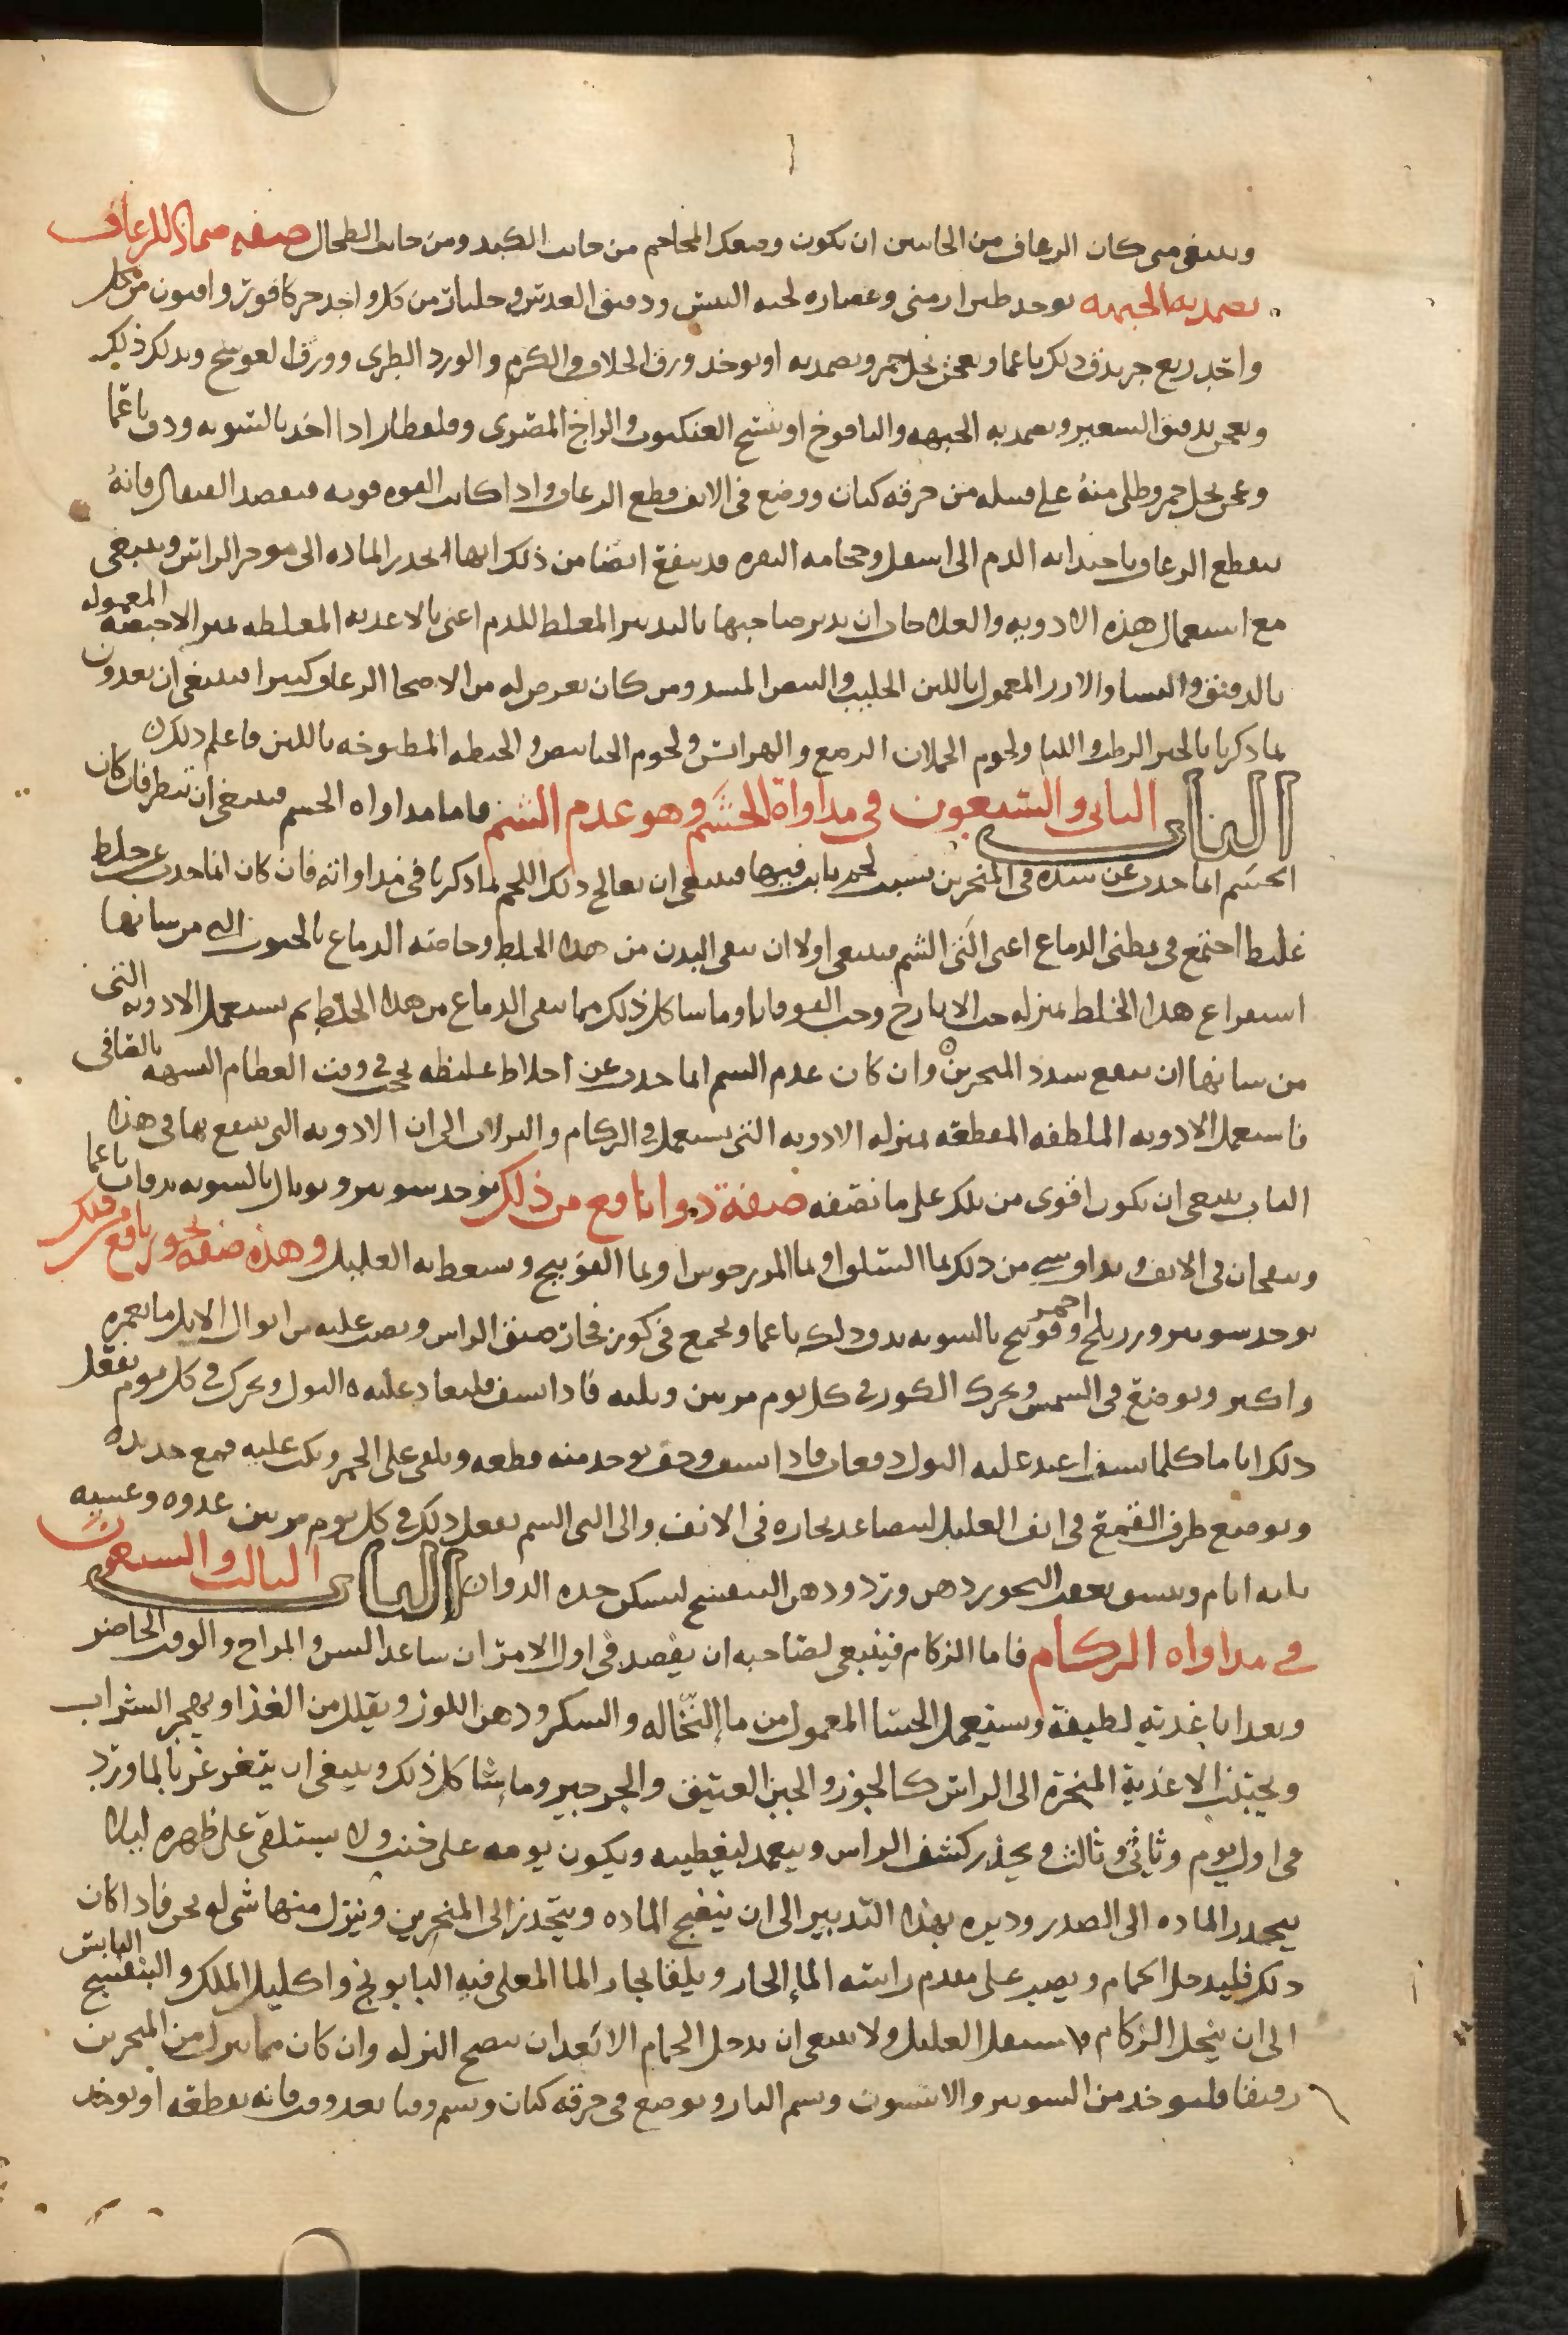 وينبغي متى كان الرعاف من الجانبين ان يكون وضعك المحاجم من جانب الكبد ومن جانب الطحال صفه ضماد للرعاف
يضمد به الجبهه يوخذ طين ارمنى وعصاره لحيه التيس ودقيق العدس وجلنار من كل واحد جز كافور وافيون من كل
واحد ربع جز يدق ذلك ناعما ويعجن بخل خمر ويضمد به او يوخذ ورق الخلاف والكرم والورد الطرى وورق العوسج ويدلك ذلك
ويعجن بدقيق الشعير ويضمد به الجبهه واليافوخ او نسج العنكبوت والزاج المصرى وقلقطار اذا اخذ بالسويه ودق ناعما
وعجن بخل خمر وطلى منه على فتيله من خرقه كتان ووضع فى الانف قطع الرعاف واذا كانت القوه قويه فيفصد القيفال فانه
يقطع الرعاف باجتذابه الدم الى اسفل وحجامه النقره قد ينفع ايضا من ذلك لانها تحدر الماده الى موخر الراس وينبغى
مع استعمال هذه الادويه والعلاجات ان يدبر صاحبها بالتدبير المغلظ للدم اعنى بالاغذيه المغلظه بمنزله الاخبصه المعموله
بالدقيق والنشا والارز المعمول باللبن الحليب والبيض المسد ومن كان يعرض له من الاصحا الرعاف كثيرا فينبغى ان يغدون
بما ذكرنا بالجبن الرطب واللبا ولحوم الحملان الرضع والهرايس ولحوم الجباجب والحنطه المطبوخه باللبن فاعلم ذلك
الباب الثانى والسبعون فى مداواة الخشم وهو عدم الشم فاما مداواه الخشم فينبغى ان تنظر فان كان
الخشم انما حدث عن سده فى المنخرين بسبب لحم نابت فيها فينبغى ان تعالج ذلك اللحم بما ذكرنا فى مداواته فان كان انما حدث عن خلط
غليظ اجتمع فى بطنى الدماغ اعنى التى الشم فينبغى اولا ان ينقى البدن من هذا الخلط وخاصه الدماغ بالحبوب التى من شانها
استفراغ هذا الخلط بمنزله حب الايارج وحب القوقايا وما شاكل ذلك مما ينقى الدماغ من هذا الخلط ثم يستعمل الادويه التى
من شانها ان تفتح سدد المنخرين وان كان عدم الشم انما حدث عن اخلاط غليظه لحجت فى وقت العظام الشبيه بالمصافى
فاستعمل الادويه الملطفه المقطعه بمنزله الادويه التى تستعمل فى الزكام والنزلات الى ان الادويه التى ينتفع بها فى هذا
الباب ينبغى ان يكون اقوى من تلك على ما نصفه صفة دوا نافع من ذلك يوخذ شونيز وبوبال بالسويه يدقان ناعما
وينفخان فى الانف ويداف شى من ذلك بما السلق او بما المرزجوش او بما الفوتنج ويسعط به العليل وهذه صفه بخور نافع من ذلك
يوخذ شونيز وزرنيخ احمر وفوتنج بالسويه يدق ذلك ناعما ويجمع فى كوز فخار ضيق الراس ويصب عليه من ابوال الابل ما يغمره
واكثر ويوضع فى الشمس ويحرك الكوز فى كل يوم مرتين وثلثه فاذا نشف فليعاد عليه البول ويحرك فى كل يوم يفعل
ذلك اياما كلما نشف اعيد عليه البول دفعات فاذا نشف وجف يوخذ منه قطعه ويلقى على الجمر ويكب عليه قمع حديد
ويوضع طرف القمع فى انف العليل ليتصاعد بخاره فى الانف والى التى الشم يفعل ذلك فى كل يوم مرتين غدوه وعشيه
ثلثه ايام ويسشق بعقب البخور دهن ورد ودهن البنفسج ليسكن حده الدوا الباب الثالث والسبعون
فى مداواه الزكام فاما الزكام فينبغى لصاحبه ان يفصد فى اول الامر ان ساعد السن والمزاج والوقت الحاضر
ويغدا باغذيه لطيفة ويستعمل الحسا المعمول من ما النخاله والسكر ودهن اللوز ويقلل من الغذا ويهجر الشراب
ويجتنب الاغذية المبخرة الى الراس كالجوز والجبن العتيق والجرجير وما شاكل ذلك وينبغى ان يتغرغر بالماورد
فى اول يوم وثانى وثالث ويحذر كشف الراس ويتعمد ليغطيه ويكون نومه على جنب ولا يستلقى على ظهره ليلا
ينحدر الماده الى الصدر وديره بهذا التدبير الى ان ينضج الماده ويتحدر الى المنخرين وينزل منها شى له نخن فاذا كان
ذلك فليدخل الحمام ويصب على مقدم راسه الما الحار ويلقا بخار الما المغلى فيه البابونج واكليل الملك والبنفسج اليابس
الى ان ينحل الزكام ويستقل العليل ولا ينبغى ان يدخل الحمام الا بعد ان ينضج النزله وان كان مما ينزل من المنخرين
رقيقا فليوخذ من الشونيز والانيسون ويسم النار ويوضع فى خرقه كتان ويشم وقتا بعد وقت فانه يقطعه او يوخذ